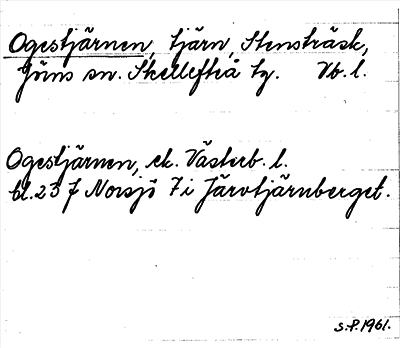 Ogestjärnen, tjärn, Stensträsk,
Jörns sn. Skellefteå tg. Vb. l.
Ogestjärnen, ek. Västerb. l.
bl. 23 f Norsjö 7 i Järvtjärnberget.
S.P. 1961.